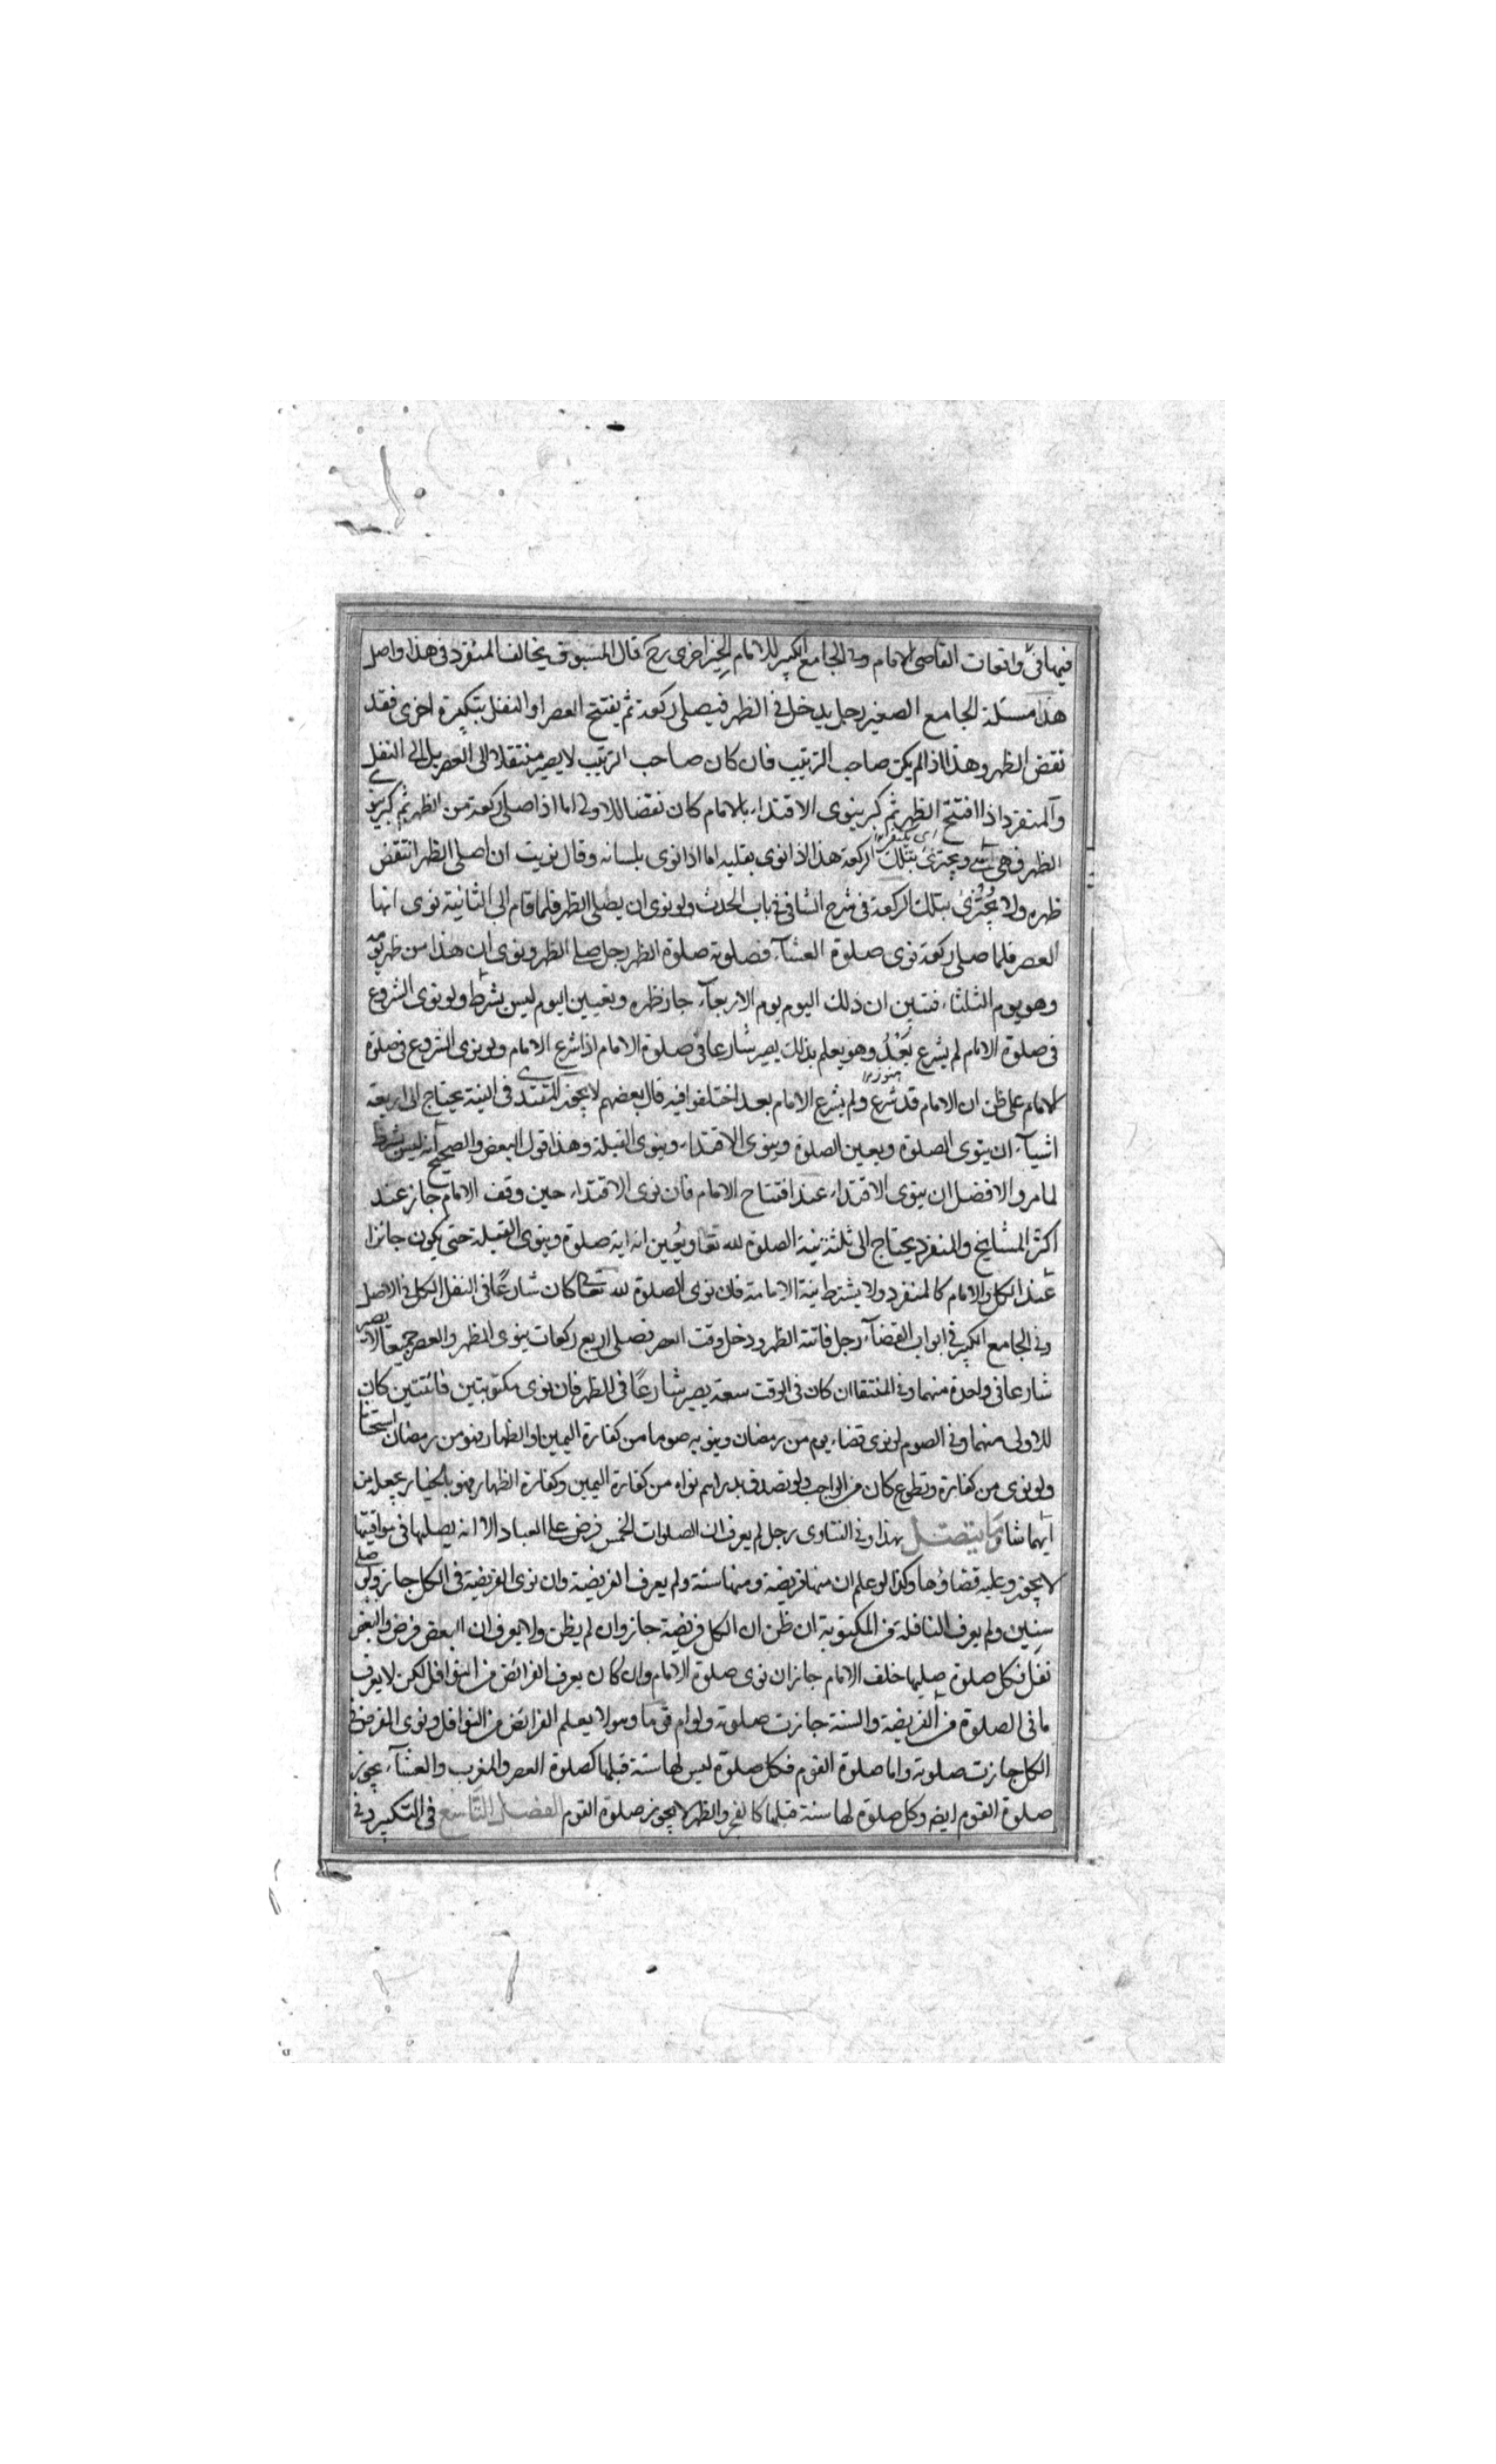 فيها في واقعات القاضي الامام وفي الجامع الكبير للامام الخيزاخزي رح قال المسبوق يخالف المنفرد في هذا واصل
هذا مسئلة الجامع الصغير رجل يدخل في الظهر فيصلي ركعة ثم يفتتح العصر او النفل بتكبيرة اخرى فقد
نقض الظهر وهذا اذا لم يكن صاحب الترتيب فان كان صاحب الترتيب لا يصير منتقلا الى العصر بل الى النفل
والمنفرد اذا افتتح الظهر ثم كبر ينوى الاقتداء بالامام كان نقضا للاولى اما اذا صلى ركعة من الظهر ثم كبر ينوي
الظهر فهي هي ويجتزئ بتلك الركعة هذا اذا نوى بقلبه اما اذا نوى بلسانه وقال نويت ان اصلي الظهر انتقض
ظهره ولا يجتزئ بتلك الركعة في شرح الشافي في باب الحدث ولو نوى ان يصلي الظهر فلما قام الى الثانية نوى انها
العصر فلما صلى ركعة نوى صلوة العشآء فصلوته صلوة الظهر رجل صلى الظهر ونوى ان هذا من ظهر يومه
وهو يوم الثلثاء فتبين ان ذلك اليوم يوم الاربعآء جاز ظهره وتعيين اليوم ليس بشرط ولو نوى الشروع
فى صلوة الامام لم يشرع بَعْدُ وهو يعلم بذلك يصير شارعا في صلوة الامام اذا شرع الامام ولو نوى الشروع في صلوة
الامام على ظن ان الامام قد شرع ولم يشرع الامام بعد اختلفوا فيه قال بعضهم لا يجوز المقتدي فى النية يحتاج الى اربعة
اشيآء ان ينوى الصلوة ويعين الصلوة وينوى الاقتداء وينوى القبلة وهذا قول البعض والصحيح انه ليس بشرط
لما مر والافضل ان ينوى الاقتداء عند افتتاح الامام فان نوى الاقتداء حين وقف الامام جاز عند
اكثر المشايخ والمنفرد يحتاج الى ثلثة نية الصلوة لله تعا ويُعين انه اية صلوة وينوى القبلة حتى يكون جائزا
عند الكل والامام كالمنفرد ولا يشترط نية الامامة فان نوى الصلوة لله تعا كان شارعًا فى النفل الكل في الاصل
وفي الجامع الكبير في ابواب القضآء رجل فاتته الظهر ودخل وقت العصر فصلى اربع ركعات ينوى الظهر والعصر جميعا لا يصير
شارعا فى واحدة منهما وفي المنتقا ان كان فى الوقت سعة يصير شارعًا فى الظهر فان نوى مكتوبتين فائتتين كان
للاولى منهما وفي الصوم لو نوى قضاء يوم من رمضان وينوى به صوما من كفارة اليمين والظهار فهو من رمضان استحسانا
ولو نوى من كفارة وتطوع كان من الواجب ولو تصدق بدراهم نواه من كفارة اليمين وكفارة الظهار فهو بالخيار يجعل من
ايهما شا وما يتصل بهذا وفي الفتاوى رجل لم يعرف ان الصلوات الخمس فرض على العباد الا انه يصليها فى مواقيتها
لا يجوز وعليه قضاؤها وكذا لو علم ان منها فريضة ومنها سنة ولم يعرف الفريضة وان نوى الفريضة فى الكل جاز ولو صلى
سنين ولم يعرف النافلة من المكتوبة ان ظن ان الكل فريضة جاز وان لم يظن ولا يعرف ان البعض فرض والبعض
نفل فكل صلوة صليها خلف الامام جاز ان نوى صلوة الامام وان كان يعرف الفرائض من النوافل لكن لا يعرف
ما فى الصلوة من الفريضة والسنة جازت صلوته ولو ام قوما وهو لا يعلم الفرائض من النوافل ونوى الفرض في
الكل جازت صلوته واما صلوة القوم فكل صلوة ليس لها سنة قبلها كصلوة العصر والمغرب والعشآء يجوز
صلوة القوم ايضا وكل صلوة لها سنة قبلها كالفجر والظهر لا يجوز صلوة القوم الفصل التاسع فى التكبير وفي